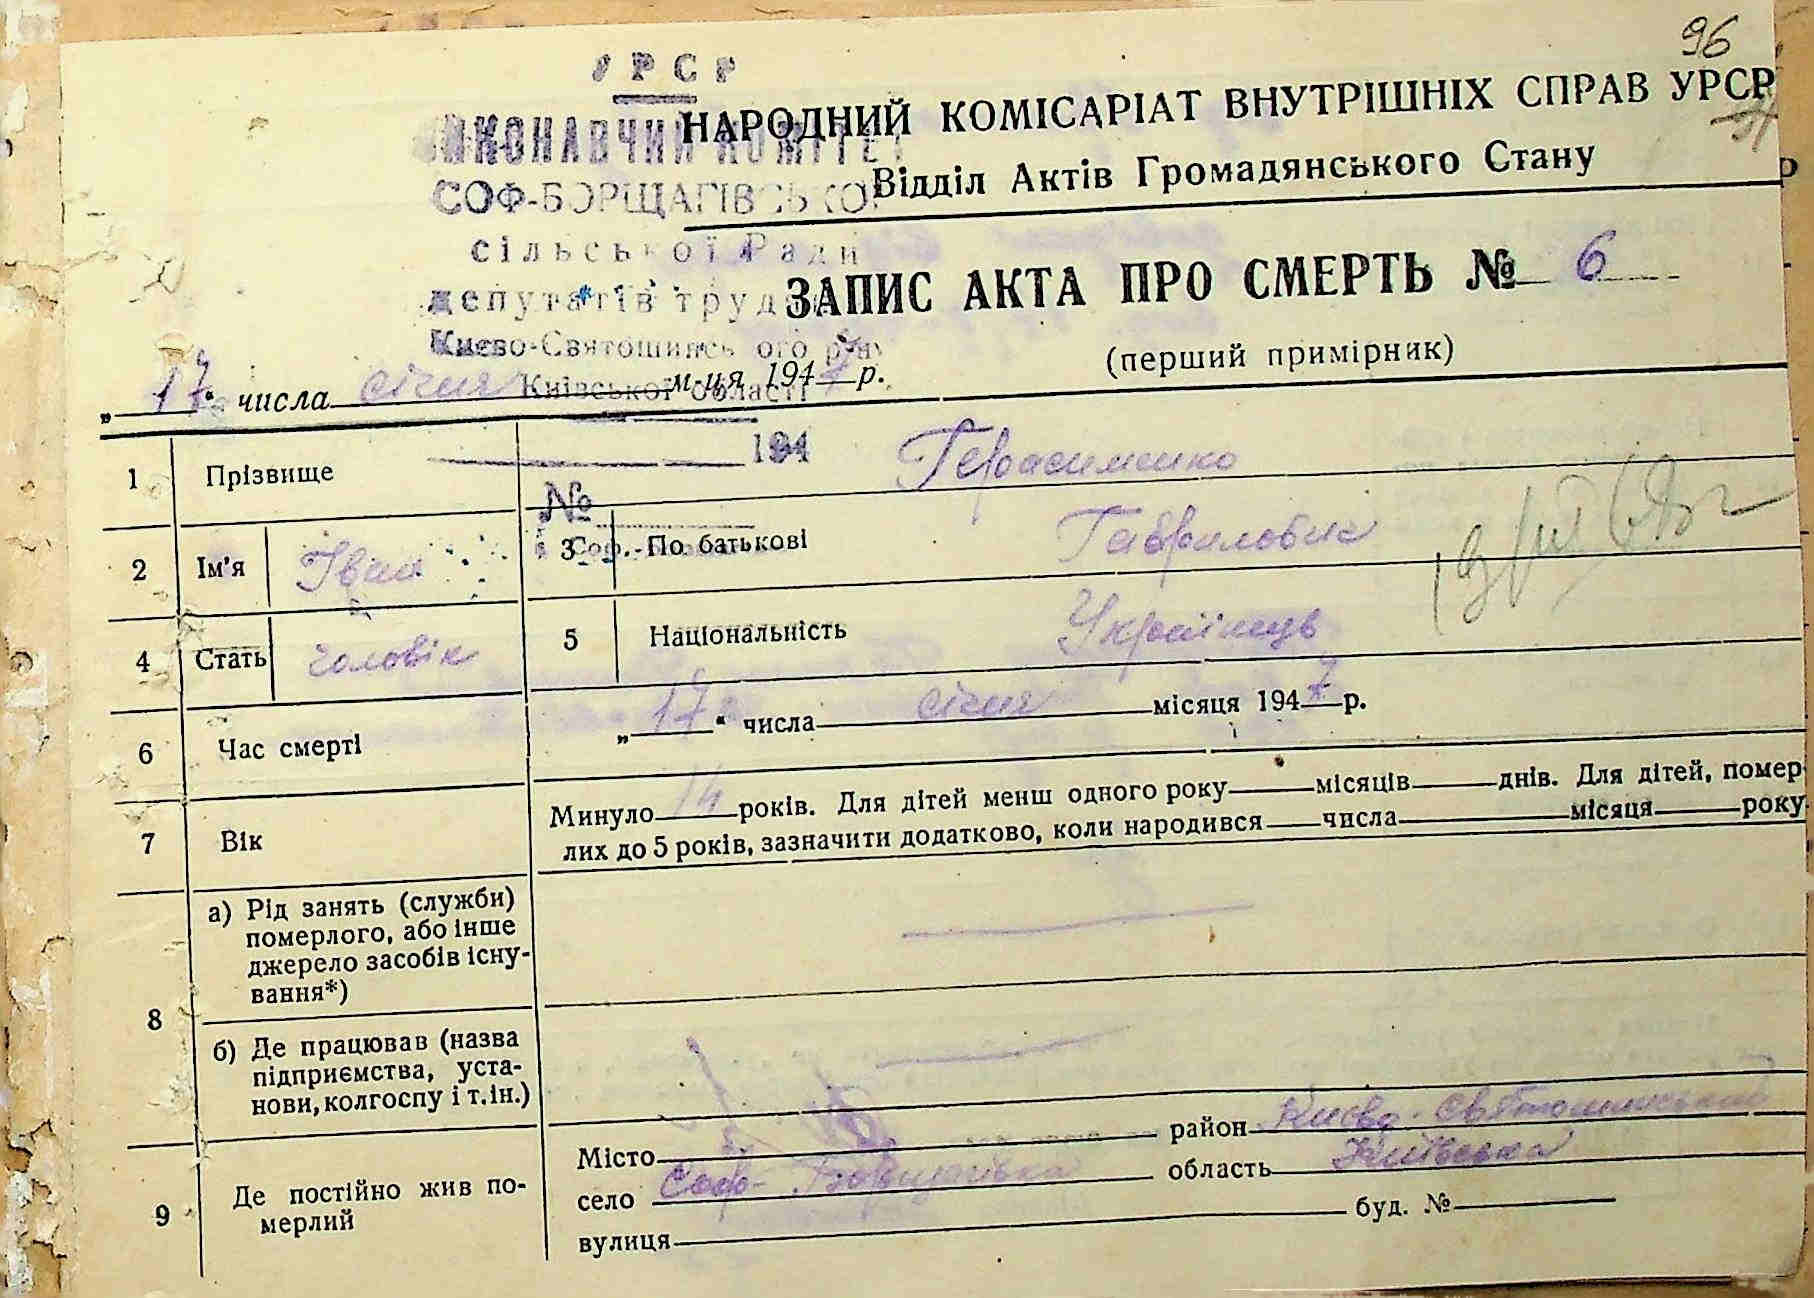 96
УРСР
ВИКОНАВЧИЙ КОМІТЕТ
СОФ-БОРЩАГІВСЬКОЇ
сільської Ради
депутатів труд
Києво-Святошинського р-ну
Київської області
194
№
Соф.-
НАРОДНИЙ КОМІСАРІАТ ВНУТРІШНІХ СПРАВ УРСР
Відділ Актів Громадянського Стану
ЗАПИС АКТА ПРО СМЕРТЬ № 6
(перший примірник)
„17“ числа січня м-ця 1947 р.
1 Прізвище Герасименко
2 Ім'я Іван 3 По батькові Гаврилович
4 Стать чоловік 5 Національність Українець
6 Час смерті „17“ числа січня місяця 1947 р.
7 Вік Минуло 14 років. Для дітей менш одного року місяців днів. Для дітей, помер-
лих до 5 років, зазначити додатково, коли народився числа місяця року
8 а) Рід занять (служби)
померлого, або інше
джерело засобів існу-
вання*)
б) Де працював (назва
підприємства, уста-
нови, колгоспу і т.ін.)
9 Де постійно жив по-
мерлий
Місто район Києво-Святошинський
село Соф-Борщагівка область Київська
вулиця буд. №